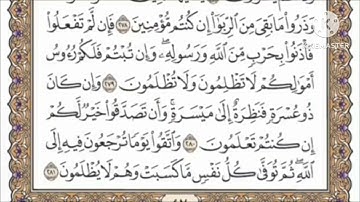 وَذَرُوا۟ مَا بَقِىَ مِنَ ٱلرِّبَوٰٓا۟ إِن كُنتُم مُّؤْمِنِينَ ٢٧٨ فَإِن لَّمْ تَفْعَلُوا۟
فَأْذَنُوا۟ بِحَرْبٍ مِّنَ ٱللَّهِ وَرَسُولِهِۦ وَإِن تُبْتُمْ فَلَكُمْ رُءُوسُ
أَمْوَٰلِكُمْ لَا تَظْلِمُونَ وَلَا تُظْلَمُونَ ٢٧٩ وَإِن كَانَ
ذُو عُسْرَةٍ فَنَظِرَةٌ إِلَىٰ مَيْسَرَةٍ وَأَن تَصَدَّقُوا۟ خَيْرٌ لَّكُمْ
إِن كُنتُمْ تَعْلَمُونَ ٢٨٠ وَٱتَّقُوا۟ يَوْمًا تُرْجَعُونَ فِيهِ إِلَى
ٱللَّهِ ثُمَّ تُوَفَّىٰ كُلُّ نَفْسٍ مَّا كَسَبَتْ وَهُمْ لَا يُظْلَمُونَ ٢٨١